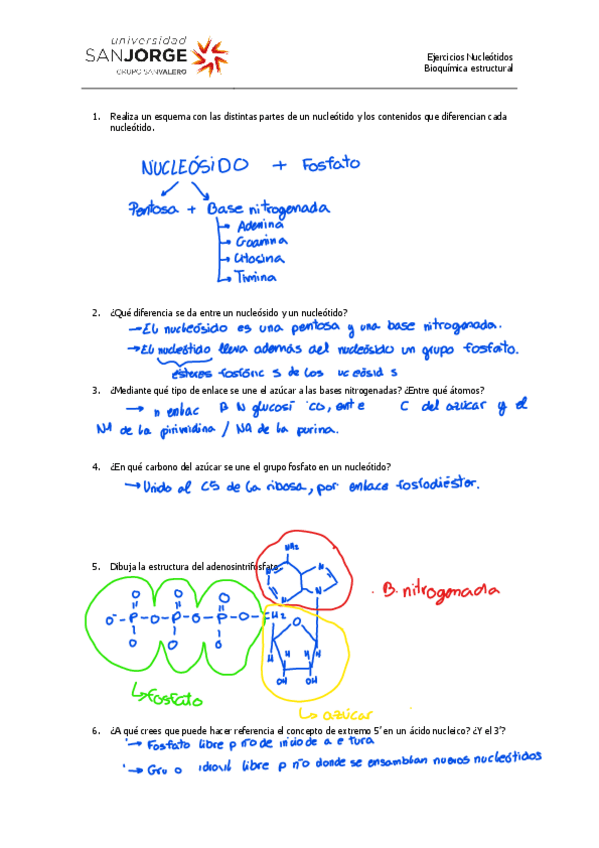 universidad
SANJORGE
GRUPO SANVALERO
Ejercicios Nucleótidos
Bioquímica estructural
1. Realiza un esquema con las distintas partes de un nucleótido y los contenidos que diferencian cada
nucleótido.
NUCLEÓSIDO + Fosfato
Pentosa + Base nitrogenada
Adenina
Guanina
Citosina
Timina
2. ¿Qué diferencia se da entre un nucleósido y un nucleótido?
→ El nucleósido es una pentosa y una base nitrogenada.
→ El nucleótido lleva además del nucleósido un grupo fosfato.
ésteres fosfóric s de los uc eósid s
3. ¿Mediante qué tipo de enlace se une el azúcar a las bases nitrogenadas? ¿Entre qué átomos?
→ n enlac B N glucosí co, ent e C del azúcar y el
N1 de la pirimidina / N9 de la purina.
4. ¿En qué carbono del azúcar se une el grupo fosfato en un nucleótido?
→ Unido al C5 de la ribosa, por enlace fosfodiéster.
5. Dibuja la estructura del adenosintrifosfato.
NH2
N N
N N
B. nitrogenada
O O O
O⁻ - P - O - P - O - P - O - CH2
O O O
O
H H H H
OH OH
fosfato
azúcar
6. ¿A qué crees que puede hacer referencia el concepto de extremo 5' en un ácido nucleico? ¿Y el 3'?
→ Fosfato libre p nto de inicio de a e tura
→ Gru o idroxil libre p nto donde se ensamblan nuevos nucleótidos